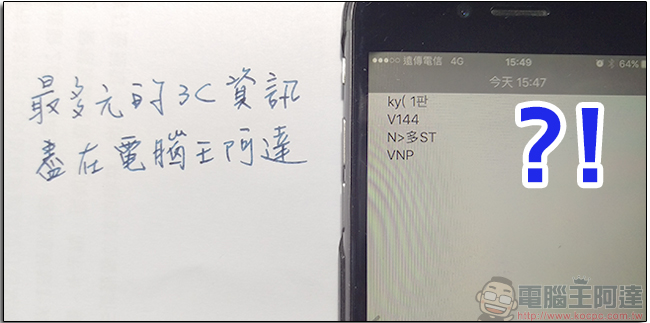 最多元的3C資訊
盡在電腦王阿達
遠傳電信 4G 15:49 64%
今天 15:47
ky( 1판
V144
N>多ST
VNP
?!
電腦王阿達
http://www.kocpc.com.tw